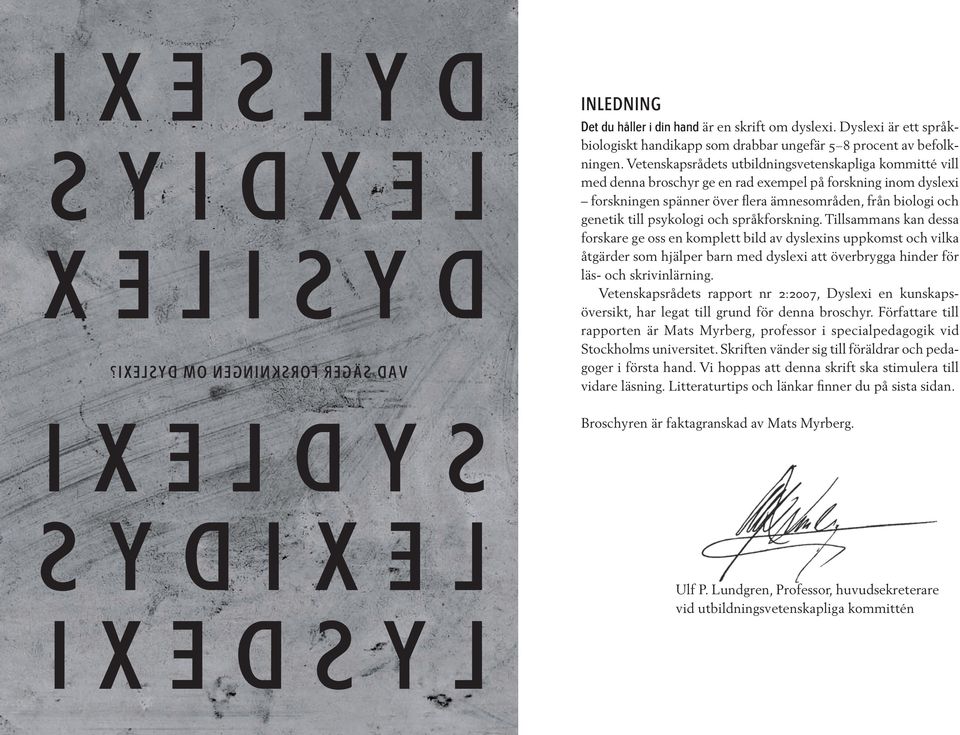 DYLSEXI
LEXDIYS
DYSILEX
VAD SÄGER FORSKNINGEN OM DYSLEXI?
SYDLEXI
LEXIDYS
LYSDEXI
INLEDNING
Det du håller i din hand är en skrift om dyslexi. Dyslexi är ett språk-
biologiskt handikapp som drabbar ungefär 5–8 procent av befolk-
ningen. Vetenskapsrådets utbildningsvetenskapliga kommitté vill
med denna broschyr ge en rad exempel på forskning inom dyslexi
– forskningen spänner över flera ämnesområden, från biologi och
genetik till psykologi och språkforskning. Tillsammans kan dessa
forskare ge oss en komplett bild av dyslexins uppkomst och vilka
åtgärder som hjälper barn med dyslexi att överbrygga hinder för
läs- och skrivinlärning.
Vetenskapsrådets rapport nr 2:2007, Dyslexi en kunskaps-
översikt, har legat till grund för denna broschyr. Författare till
rapporten är Mats Myrberg, professor i specialpedagogik vid
Stockholms universitet. Skriften vänder sig till föräldrar och peda-
goger i första hand. Vi hoppas att denna skrift ska stimulera till
vidare läsning. Litteraturtips och länkar finner du på sista sidan.
Broschyren är faktagranskad av Mats Myrberg.
Ulf P. Lundgren, Professor, huvudsekreterare
vid utbildningsvetenskapliga kommittén